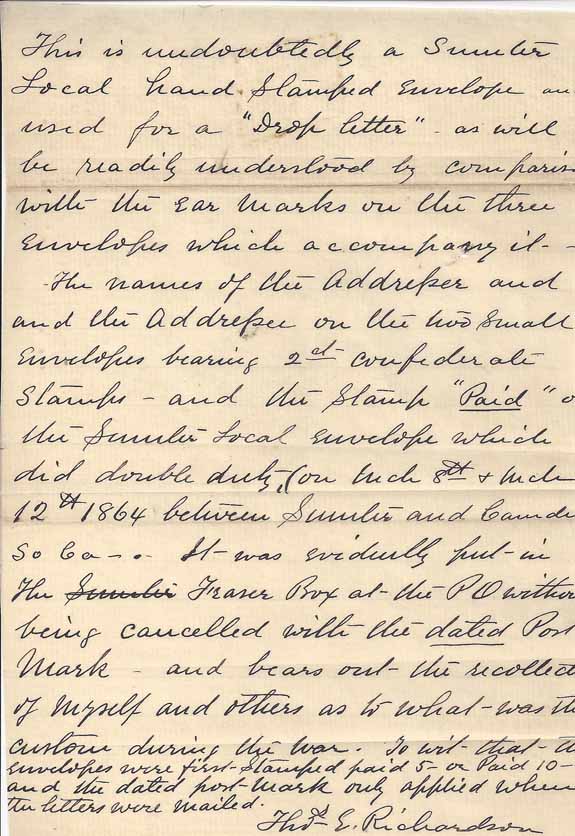 This is undoubtedly a Sumter
Local hand Stamped Envelope an
used for a "Drop letter" - as will
be readily understood by comparis
with the Ear Marks on the three
Envelopes which accompany it -
- The names of the Addresser and
and the Addressee on the two small
Envelopes bearing 2ct confederate
Stamps - and the Stamp "Paid" o
the Sumter Local Envelope which
did double duty, (on Mch 8th & Mch
12th 1864 between Sumter and Camde
So Ca - . It was evidently put in
The Sumter Fraser Box at the P O withou
being cancelled with the dated Post
Mark - and bears out the recollect
of Myself and others as to what was th
custom during the War. To wit - that - th
Envelopes were first Stamped paid 5 - or Paid 10 -
and the dated post-Mark only applied when
the letters were mailed.
Thos E. Richardson